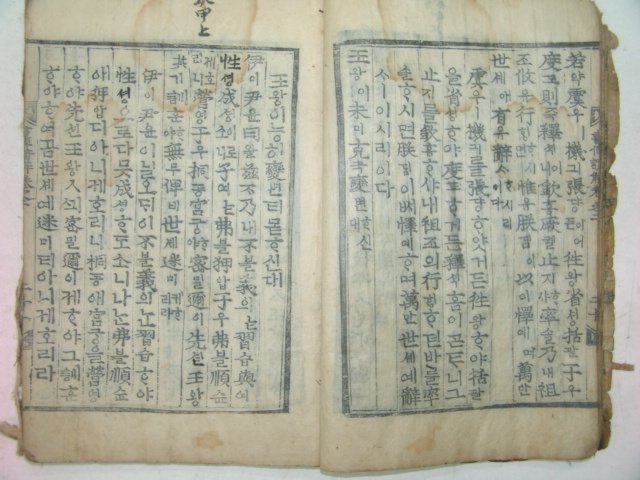 甲上
若약虞우ㅣ機긔張댱이어든往왕省셩括괄于우
度도則즉釋셕이니欽흠厥궐止지ᄒᆞ샤率솔乃내祖
조攸유行ᄒᆡᆼᄒᆞ시면惟유朕짐이以이懌역ᄒᆞ며萬만
世셰예有유辭ᄉᆞᄒᆞ시리이다
虞우ㅣ機긔를張댱ᄒᆞ얏거든往왕ᄒᆞ야括괄
을省셩ᄒᆞ야度도애ᄒᆞ거든釋셕홈이ᄀᆞᆮᄐᆞ니그
止지를欽흠ᄒᆞ샤내祖조의行ᄒᆡᆼᄒᆞ시던바를率
솔ᄒᆞ시면朕짐이ᄡᅥ懌역ᄒᆞ며萬만世셰예辭
ᄉᆞㅣ이시리이다
王왕이未미克극變변ᄒᆞ신대
王왕이능히變변티몯ᄒᆞ신대
伊이尹윤曰왈玆ᄌᆞ乃내不불義의ᄂᆞᆫ習습與여
性셩成셩이로소니予여ᄂᆞᆫ弗불狎압于우弗불順슌
케호리니營영于우桐동宮궁ᄒᆞ야密밀邇이先션王왕
其기訓훈ᄒᆞ야無무俾비世셰迷미케호리라
伊이尹윤이ᄀᆞᆯ오ᄃᆡ이不불義의ᄂᆞᆫ習습ᄒᆞ야
性셩으로다ᄆᆞᆺ成셩ᄒᆞ도소니나ᄂᆞᆫ弗불順슌
애狎압디아니케호리니桐동애宮궁을營영
ᄒᆞ야先션王왕ᄭᅴ密밀邇이케ᄒᆞ야그訓훈
ᄒᆞ야ᄒᆞ여곰世셰예迷미티아니케호리라